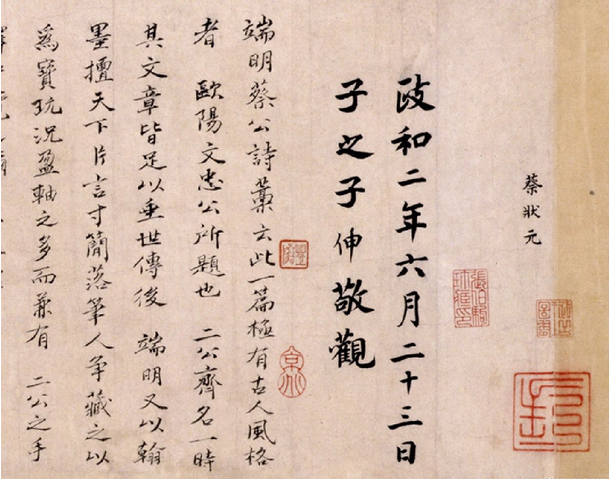 蔡狀元
政和二年六月二十三日
子之子伸敬觀
端明蔡公詩藁云此一篇極有古人風格
者 歐陽文忠公所題也 二公齊名一時
其文章皆足以垂世傳後 端明又以翰
墨擅天下片言寸簡落筆人爭藏之以
為寶玩況盈軸之多而兼有 二公之手